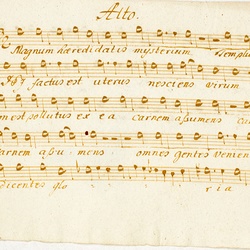 Alto.
Magnum hæreditatis mysterium Templu
factus est uterus nesciens virum
est pollutus ex ea carnem assumens
carnem assumens omnes gentes venien
dicentes glo ria